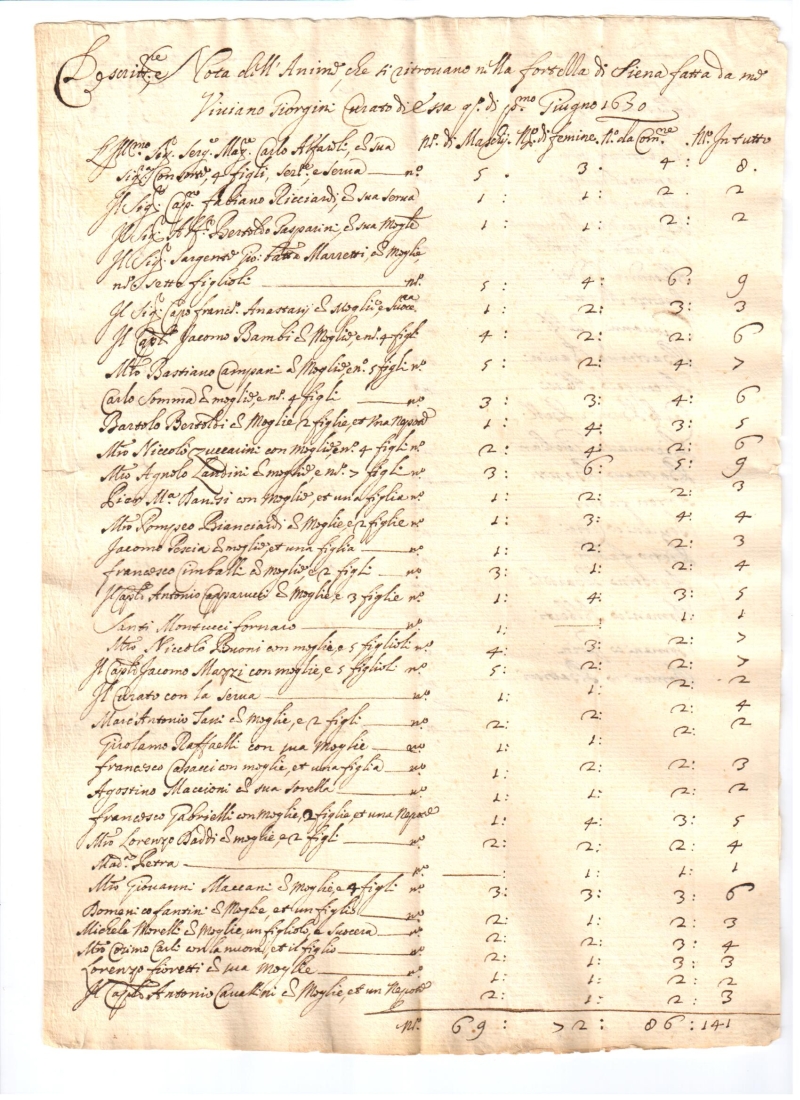 Descritt.ne e Nota dell'Anime, che si ritrovano nella fortezza di Siena fatta da me
Viviano Giorgini Curato di essa q.o di p.mo Giugno 1630
n.o di Maschi. N.o di femine. N.o da Com.ne N.o In tutto
Ill.mo Sig. Serg. Mag. Carlo Alfaroli, e sua
Sig.ra Consorte 4 figli, e serva n.o 5. 3. 4: 8.
Il Sig. Cap. fabiano Ricciardi, e sua serva 1: 1: 2. 2
Il Sig. Alf. Bertoldo Gasparini, e sua Moglie 1: 1: 2: 2
Il Sig. Sargente Gio: batta Marretti, e Moglie
n.o sette figlioli n.o 5: 4: 6: 9
Il Sig. Capo franc. Anastasij e Moglie e 1: 2: 3: 3
Il Cap.le Jacomo Bambi e Moglie n.o 4 figli 4: 2: 2: 6
M.ro Bastiano Campani e Moglie n.o 5 figli n.o 5: 2: 4: 7
Carlo Somma e moglie e n.o 4 figli n.o 3: 3: 4: 6
Bartolo Bertoldi e Moglie 2 figlie, et una Nepote 1: 4: 3: 5
M.ro Niccolò Zuccarini con moglie n.o 4 figli n.o 2: 4: 2: 6
M.ro Agnolo Landini e moglie, e n.o 7 figli n.o 3: 6: 5: 9
Pier M.a con Moglie et una figlia n.o 1: 2: 2: 3
M.ro Pompeo Bianciardi e Moglie, e 2 figlie n.o 1: 3: 4: 4
Jacomo Pescia e moglie, et una figlia n.o 1: 2: 2: 3
francesco Cimballi e moglie, e 2 figli n.o 3: 1: 2: 4
Il Cap.le Antonio Capparucci e Moglie, e 3 figlie n.o 1: 4: 3: 5
Santi Montucci fornaro n.o 1: : 1: 1
M.ro Niccolò Buoni con moglie, e 5 figlioli n.o 4: 3: 2: 7
Il Cap.le Jacomo Mazzi con moglie, e 5 figlioli n.o 5: 2: 2: 7
Il Curato con la serva n.o 1: 1: 2: 2
Marc'Antonio Tani e Moglie, e 2 figli n.o 2: 2: 2: 4
Girolamo Raffaelli con sua Moglie n.o 1: 1: 2: 2
francesco Casacci con moglie, et una figlia n.o 1: 2: 2: 3
Agostino Maccioni e sua sorella n.o 1: 1: 2: 2
francesco Gabrielli con moglie, 2 figlie, et una Nepote 1: 4: 3: 5
M.ro Lorenzo Baddi e moglie, e 2 figli n.o 2: 2: 2: 4
Mad. Pietra n.o : 1: 1: 1
M.ro Giovanni Maccani e Moglie, e 4 figli n.o 3: 3: 3: 6
Domenico fantini e Moglie, et un figlio n.o 2: 1: 2: 3
Michele Morelli e Moglie, un figliolo, e Suocera n.o 2: 2: 3: 4
M.ro Cosimo Carli con la nuora, et il figlio n.o 2: 1: 3: 3
Lorenzo fioretti e sua Moglie n.o 1: 1: 2: 2
Il Cap.le Antonio Cavallini e Moglie, et un Nepote 2: 1: 2: 3
N.o 69: 72: 86: 141